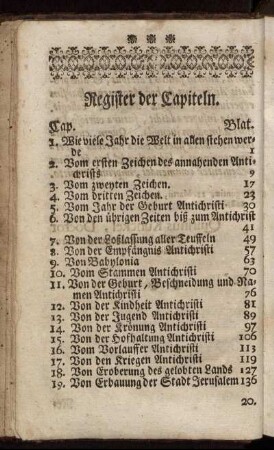 Register der Capiteln.
Cap. Blat.
1. Wie viele Jahr die Welt in allen stehen wer-
de 1
2. Vom ersten Zeichen des annahenden Anti-
christs 9
3. Vom zweyten Zeichen. 17
4. Vom dritten Zeichen. 23
5. Vom Jahr der Geburt Antichristi 30
6. Von den übrigen Zeiten biß zum Antichrist
41
7. Von der Loßlassung aller Teuffeln 49
8. Von der Empfängnus Antichristi 57
9. Von Babylonia 63
10. Vom Stammen Antichristi 70
11. Von der Geburt, Beschneidung und Na-
men Antichristi 76
12. Von der Kindheit Antichristi 81
13. Von der Jugend Antichristi 89
14. Von der Krönung Antichristi 97
15. Von der Hofhaltung Antichristi 106
16. Vom Vorlauffer Antichristi 113
17. Von den Kriegen Antichristi 119
18. Von Eroberung des gelobten Lands 127
19. Von Erbauung der Stadt Jerusalem 136
20.